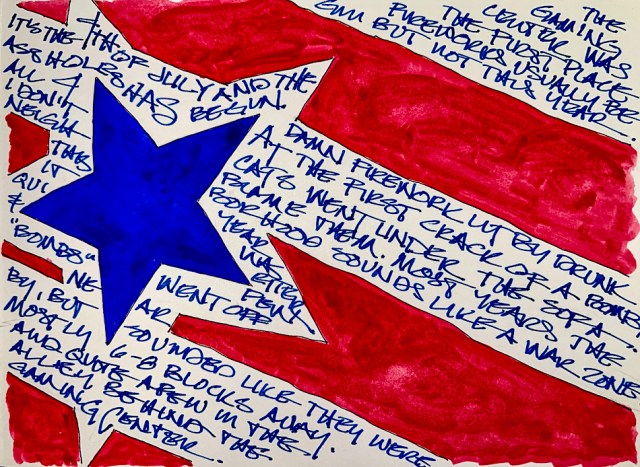 IT'S THE 4TH OF JULY AND THE
ASSHOLES HAS BEGUN.
ALL 4 A DAMN FIREWORK LIT BY DRUNK
AT THE FIRST CRACK OF A BOMB
CATS WENT UNDER THE SOFA.
I DON'T BLAME THEM. MOST YEARS THE
NEIGH BORHOOD SOUNDS LIKE A WAR ZONE
THIS YEAR
IT WAS
QUI ETTER
& FEW
"BOMBS" WENT OFF
NE AR
BY, BUT SOUNDED LIKE THEY WERE
MOSTLY 6-8 BLOCKS AWAY.
AND QUITE A FEW IN THE
ALLEY BEHIND THE
GAMING CENTER.
THE
GAMING
CENTER WAS
THE FIRST PLACE
FIREWORKS USUALLY BE
GIN BUT NOT THIS YEAR.